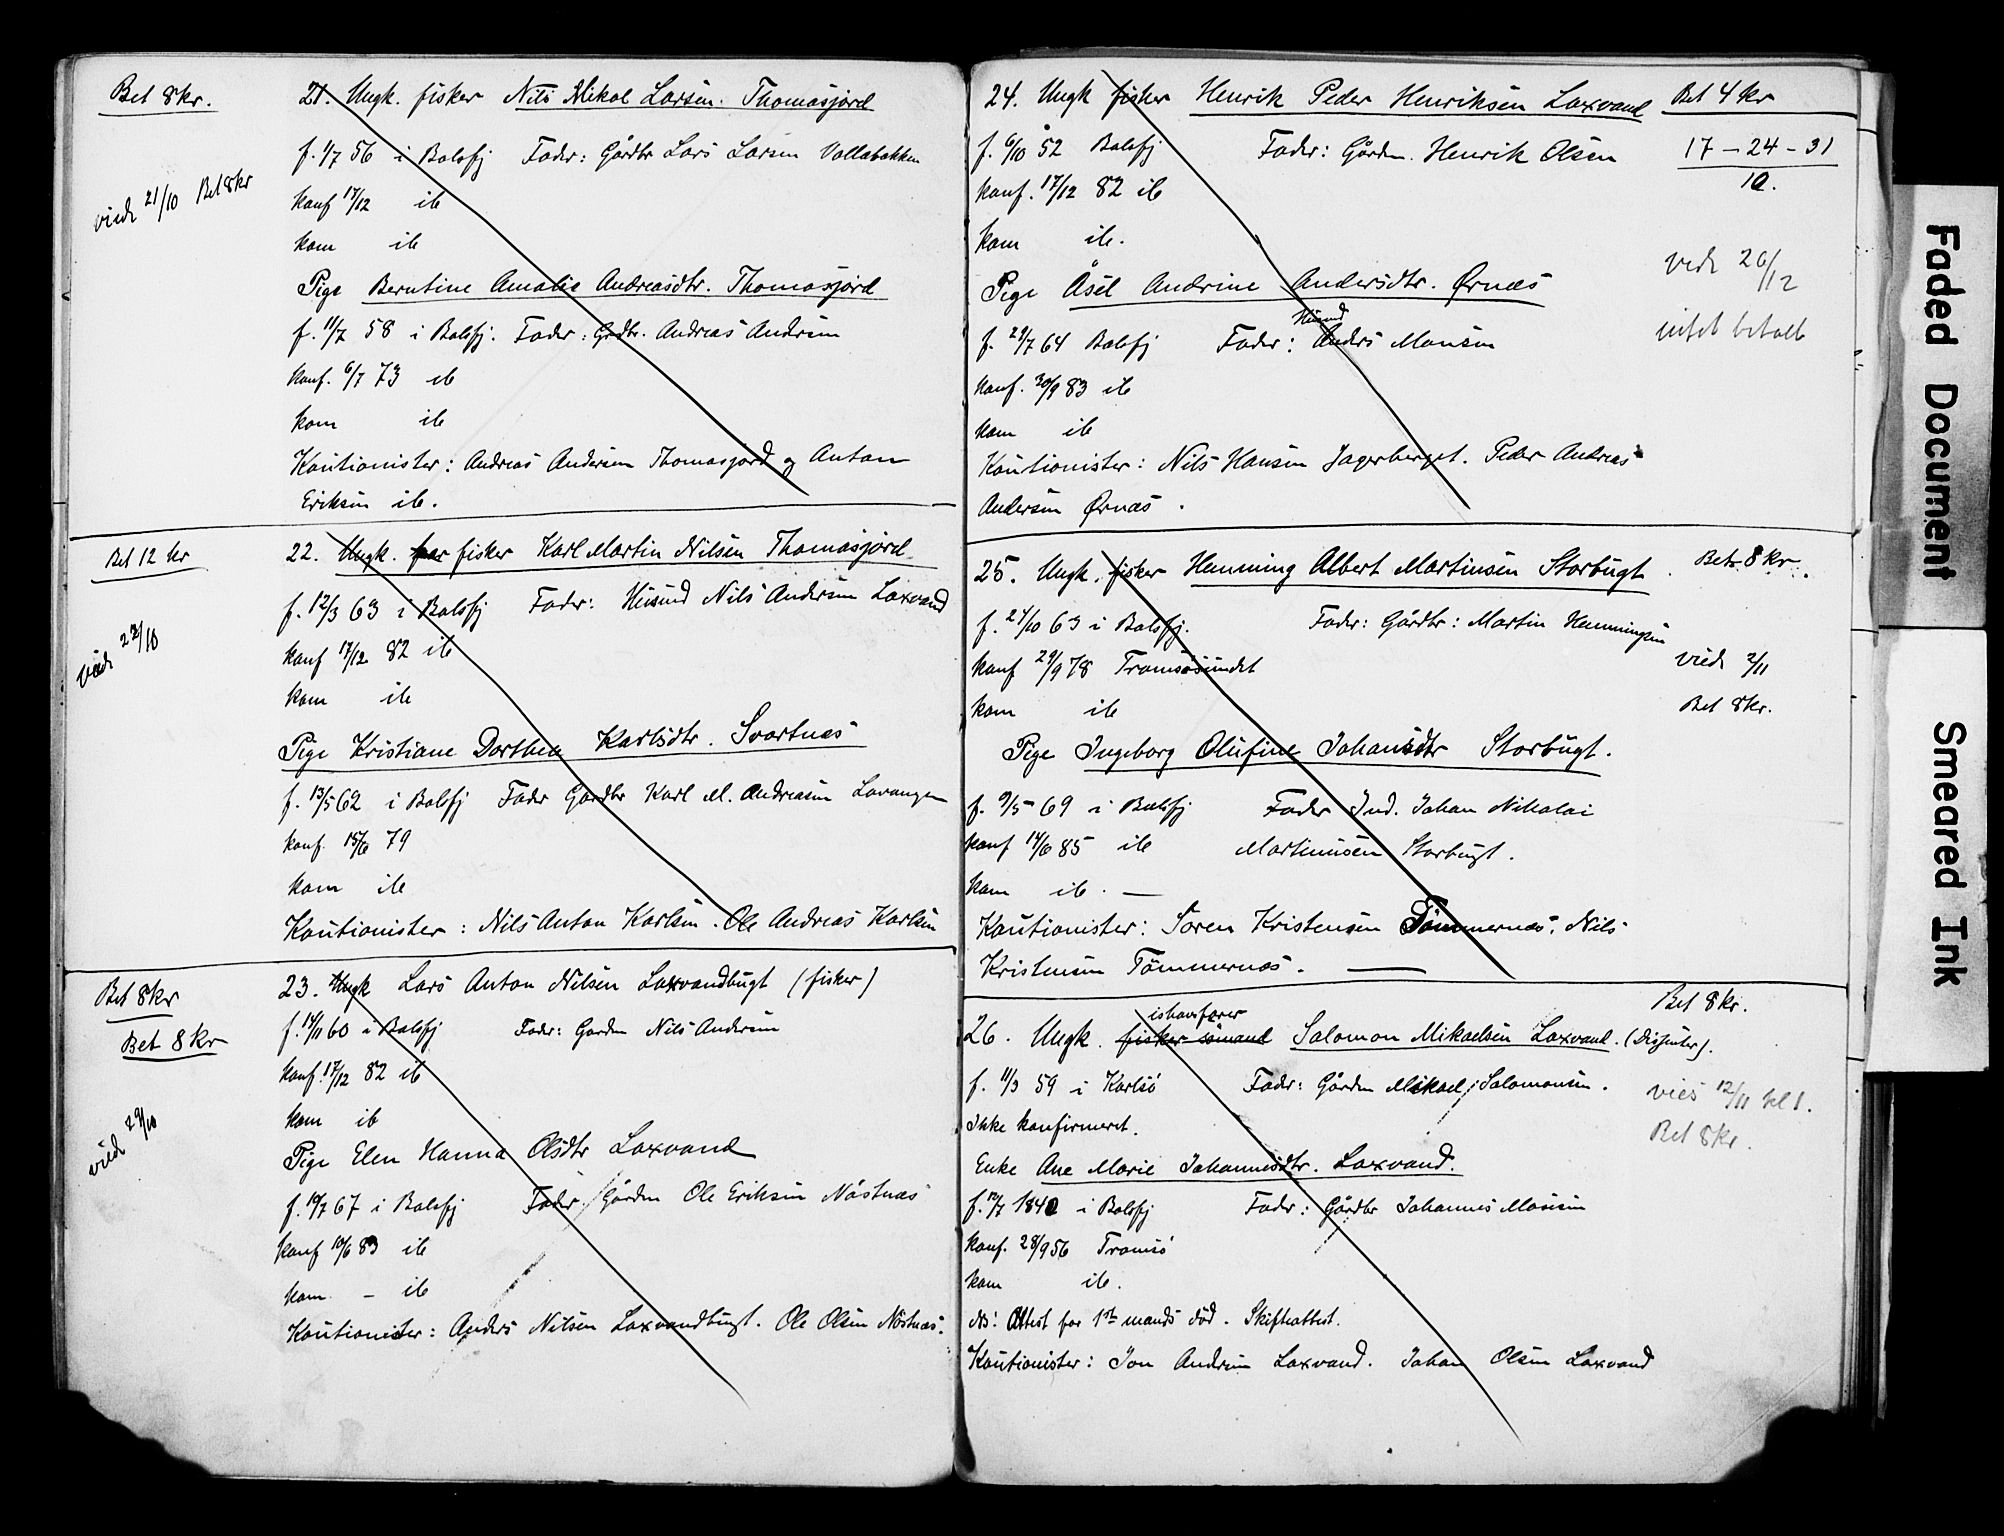 Bet 8kr.
21. Ungk. fisker Nils Mikal Larsen. Thomasjord
f. 1/7 56 i Balsfj Fader: Gårdbr Lars Larsen Vollabakken
viede 21/10 Bet 8kr
konf 17/12 ib
kom ib
Pige Berntine Amalie Andreasdtr. Thomasjord
f. 11/7 58 i Balsfj. Fader: Grdbr. Andreas Andersen
konf. 6/7 73 ib
kom ib
Kautionister: Andreas Andersen Thomasjord og Anton
Eriksen ib.
Bet 12 kr
22. Ungk. fisker Karl Martin Nilsen Thomasjord
f. 12/3 63 i Balsfj Fader: Husmd Nils Andersen Laxvand
viede 22/10
konf 17/12 82 ib
kom ib
Pige Kristiane Dorthea Karlsdtr. Svartnæs
f. 13/5 62 i Balsfj Fader Gårdbr Karl M. Andreasen Lavangen
konf. 15/6 79
kom ib
Kautionister: Nils Anton Karlsen. Ole Andreas Karlsen
Bet 8kr
23. Ungk Lars Anton Nilsen Laxvandbugt (fisker)
Bet 8kr
f. 14/11 60 i Balsfj Fader: Gårdm Nils Andersen
konf. 17/12 82 ib
kom ib
viede 29/10
Pige Elen Hanna Olsdtr Laxvand
f. 19/7 67 i Balsfj Fader Gårdm Ole Eriksen Nöstnæs
konf 10/6 83 ib
kom. - ib
Kautionister: Anders Nilsen Laxvandbugt. Ole Olsen Nöstnæs.
24. Ungk fisker Henrik Peder Henriksen Laxvand
Bet 4 kr
f. 6/10 52 Balsfj Fader: Gårdm. Henrik Olsen
17 - 24 - 31
10.
konf. 17/12 82 ib
kom ib.
viede 26/12
Pige Åsel Andrine Andersdtr. Ørnæs
Husmd
f. 29/7 64 Balsfj Fader: Anders Monsen
intet betalt
konf. 30/9 83 ib
kom ib
Kautionister: Nils Hansen Jagerberget. Peder Andreas
Andersen Ørnæs.
25. Ungk. fisker Henning Albert Martinsen Storbugt.
Bet 8 kr.
f. 24/10 63 i Balsfj. Fader: Gårdbr: Martin Henningsen
konf 29/9 78 Tromsösundet
viede 2/11
kom ib
Bet 8kr.
Pige Ingeborg Olufine Johansdtr Storbugt.
f. 9/5 69 i Balsfj Fader Ind. Johan Nikolai
konf 14/6 85 ib Martinusen Storbugt.
kom ib. —
Kautionister: Sören Kristensen Tömmernæs. Nils
Kristensen Tömmernæs. —
Bet 8 kr.
ishavsfarer
26. Ungk. fisker sömand Salomon Mikaelsen Laxvand. (Disenter).
f. 11/3 59 i Karlsö Fader: Gårdm Mikael Salomonsen.
vies 12/11 kl 1.
Ikke konfirmeret.
Bet 8kr.
Enke Ane Marie Johannesdtr. Laxvand.
f. 12/7 1840 i Balsfj Fader: Gårdbr Johannes Monsen
konf. 28/9 56 Tromsö
kom ib.
NB! Attest for 1ste mands död. Skifteattest.
Kautionister: Jon Andersen Laxvand. Johan Olsen Laxvand
Faded Document
Smeared Ink